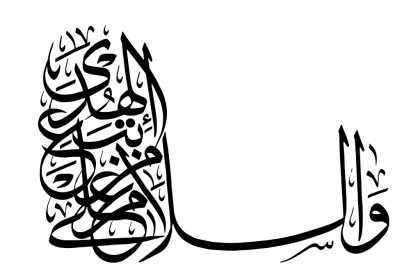 والسلام على من اتبع الهدى